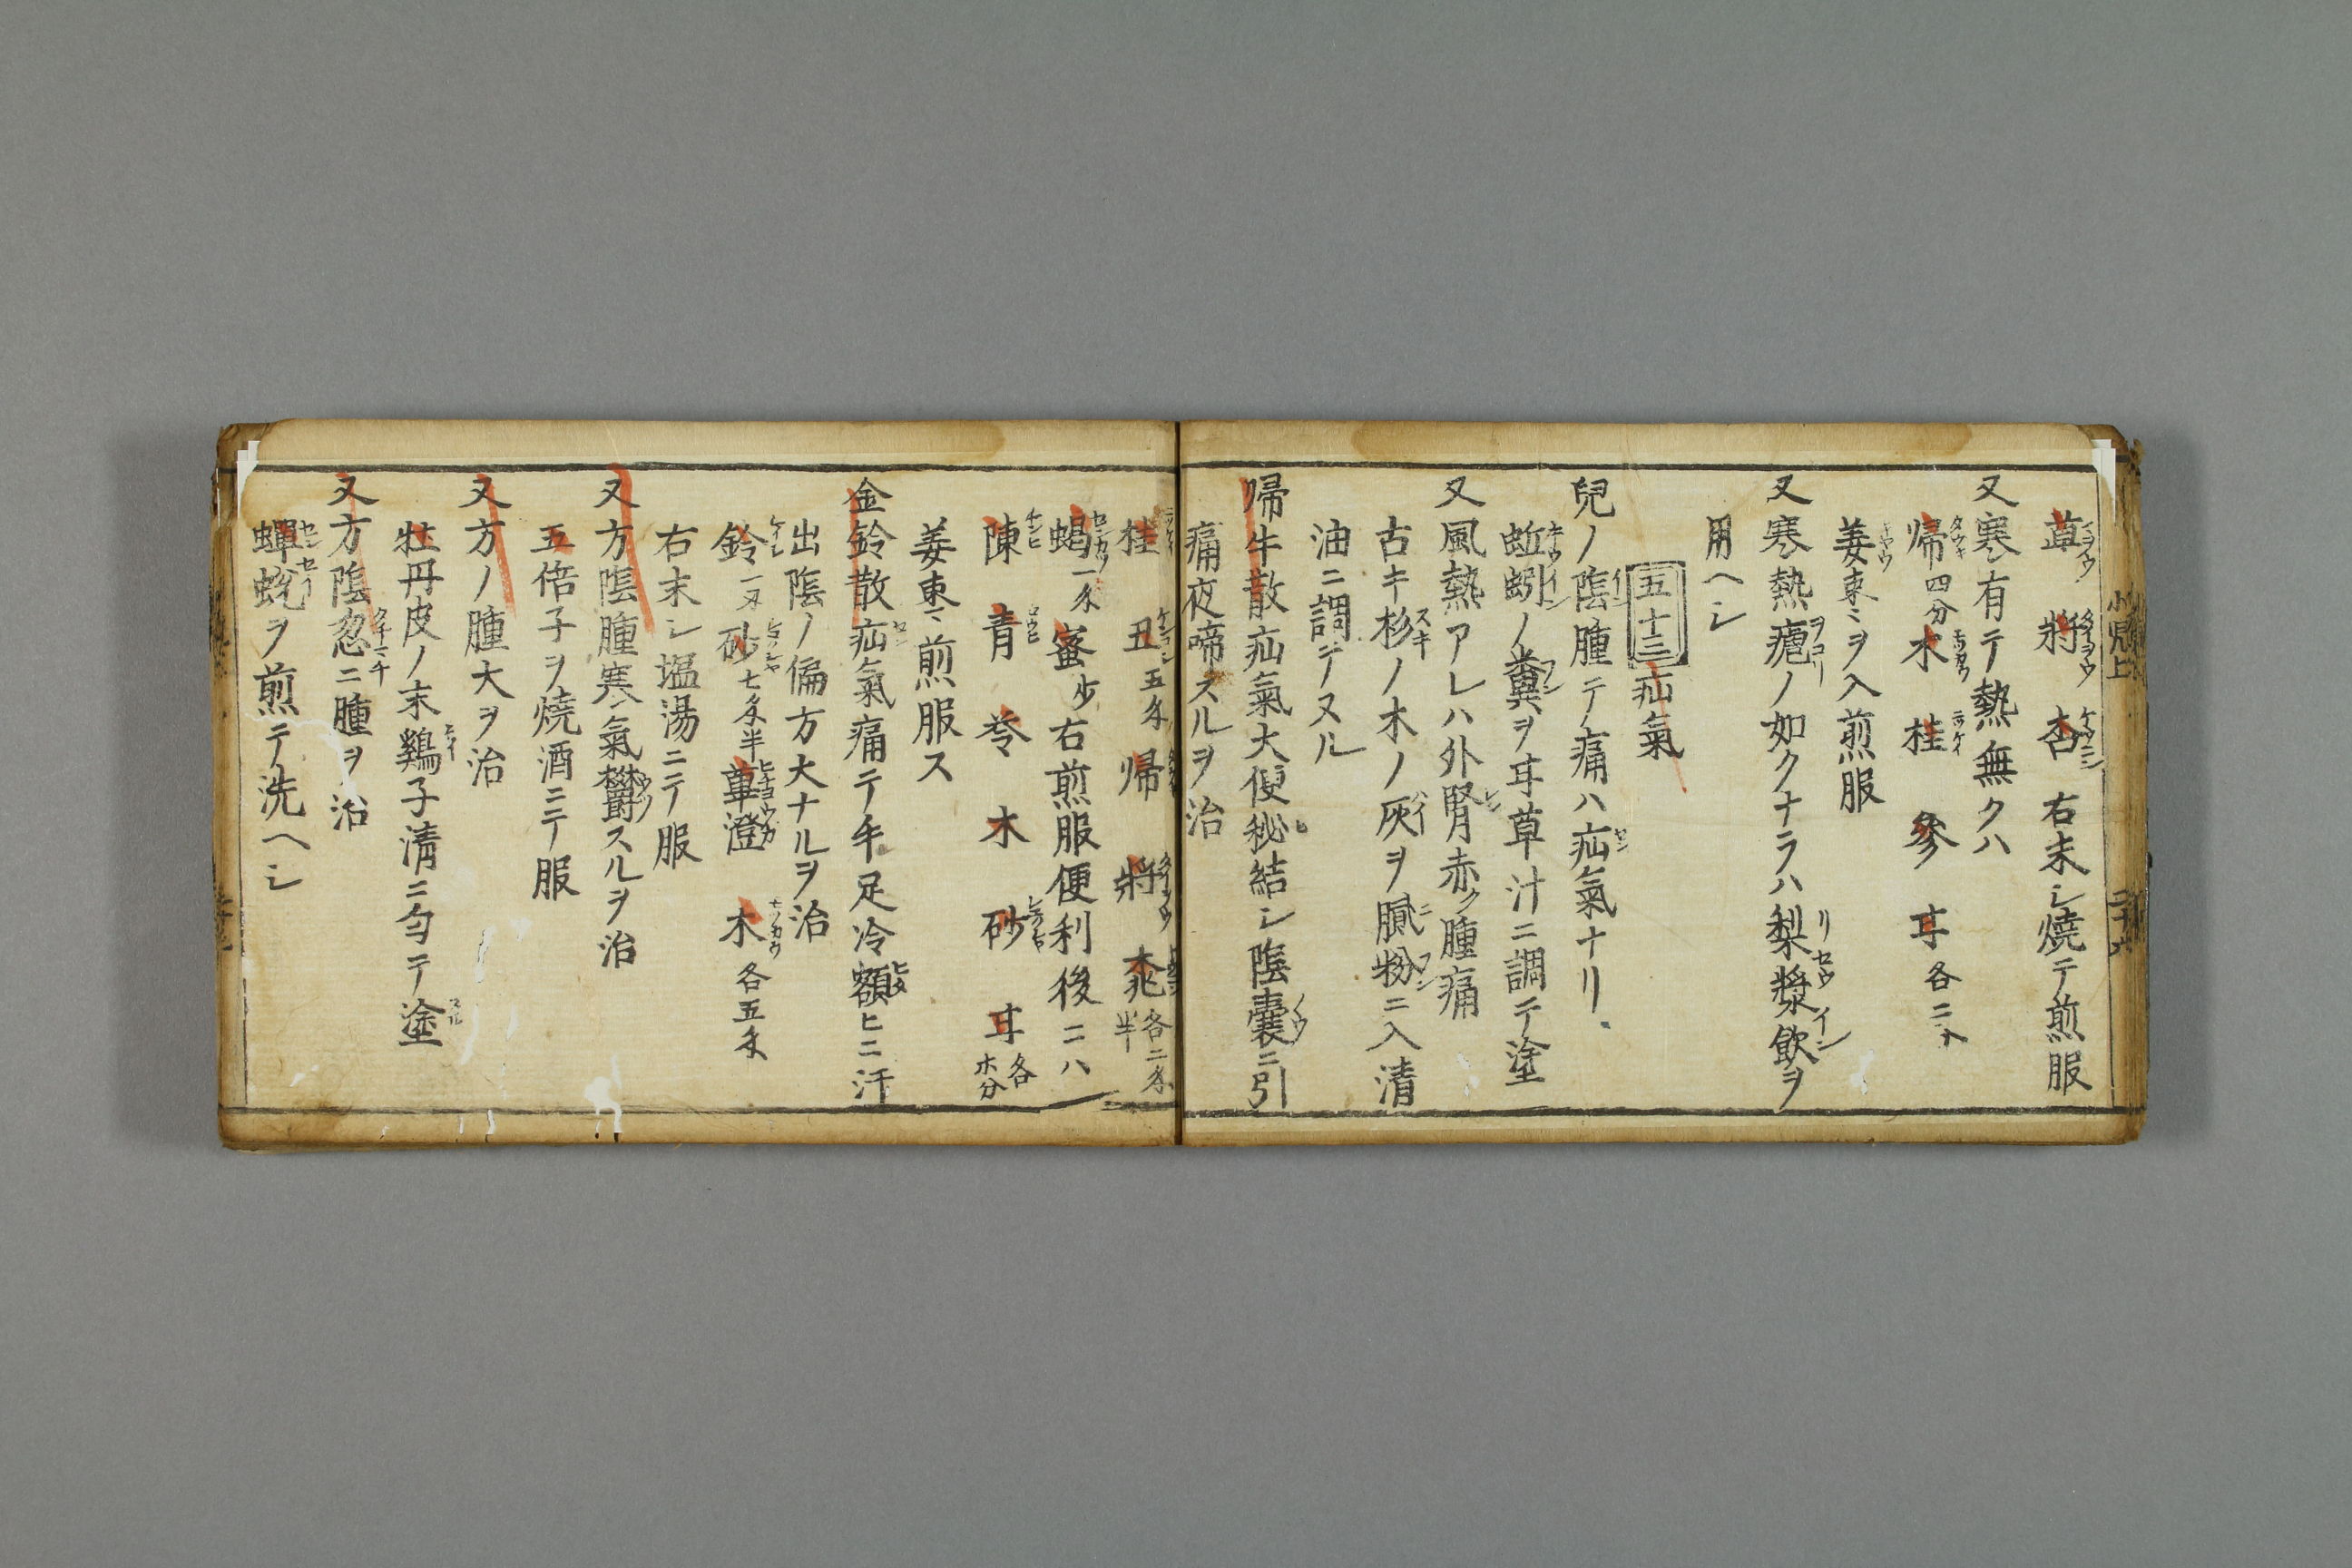 小児上
草 將 杏 右末シ燒テ煎服
又寒有テ熱無クハ
帰四分 木 桂 參 甘 各二
姜棗ヲ入煎服
又寒熱瘧ノ如クナラハ梨漿飲ヲ
用ヘシ
五十三 疝氣
兒ノ陰腫テ痛ハ疝氣ナリ
蚯蚓ノ糞ヲ甘草汁ニ調テ塗
又風熱アレハ外腎赤ク腫痛
古キ杉ノ木ノ灰ヲ膩粉ニ入清
油ニ調テヌル
帰牛散疝氣大便秘結シ陰嚢ニ引
痛夜啼スルヲ治
桂 丑五 帰 將 桃 各二半
蝎一 蜜少 右煎服便利後ニハ
陳 青 苓 木 砂 甘 各分
姜棗煎服ス
金鈴散疝氣痛テ手足冷額ヒニ汗
出陰ノ偏方大ナルヲ治
鈴一 砂七半 蓽澄 木 各五
右末シ塩湯ニテ服
又方陰腫寒氣欝スルヲ治
五倍子ヲ燒酒ニテ服
又方ノ腫大ヲ治
牡丹皮ノ末鷄子清ニ匀テ塗
又方陰忽ニ腫ヲ治
蟬蛻ヲ煎テ洗ヘシ